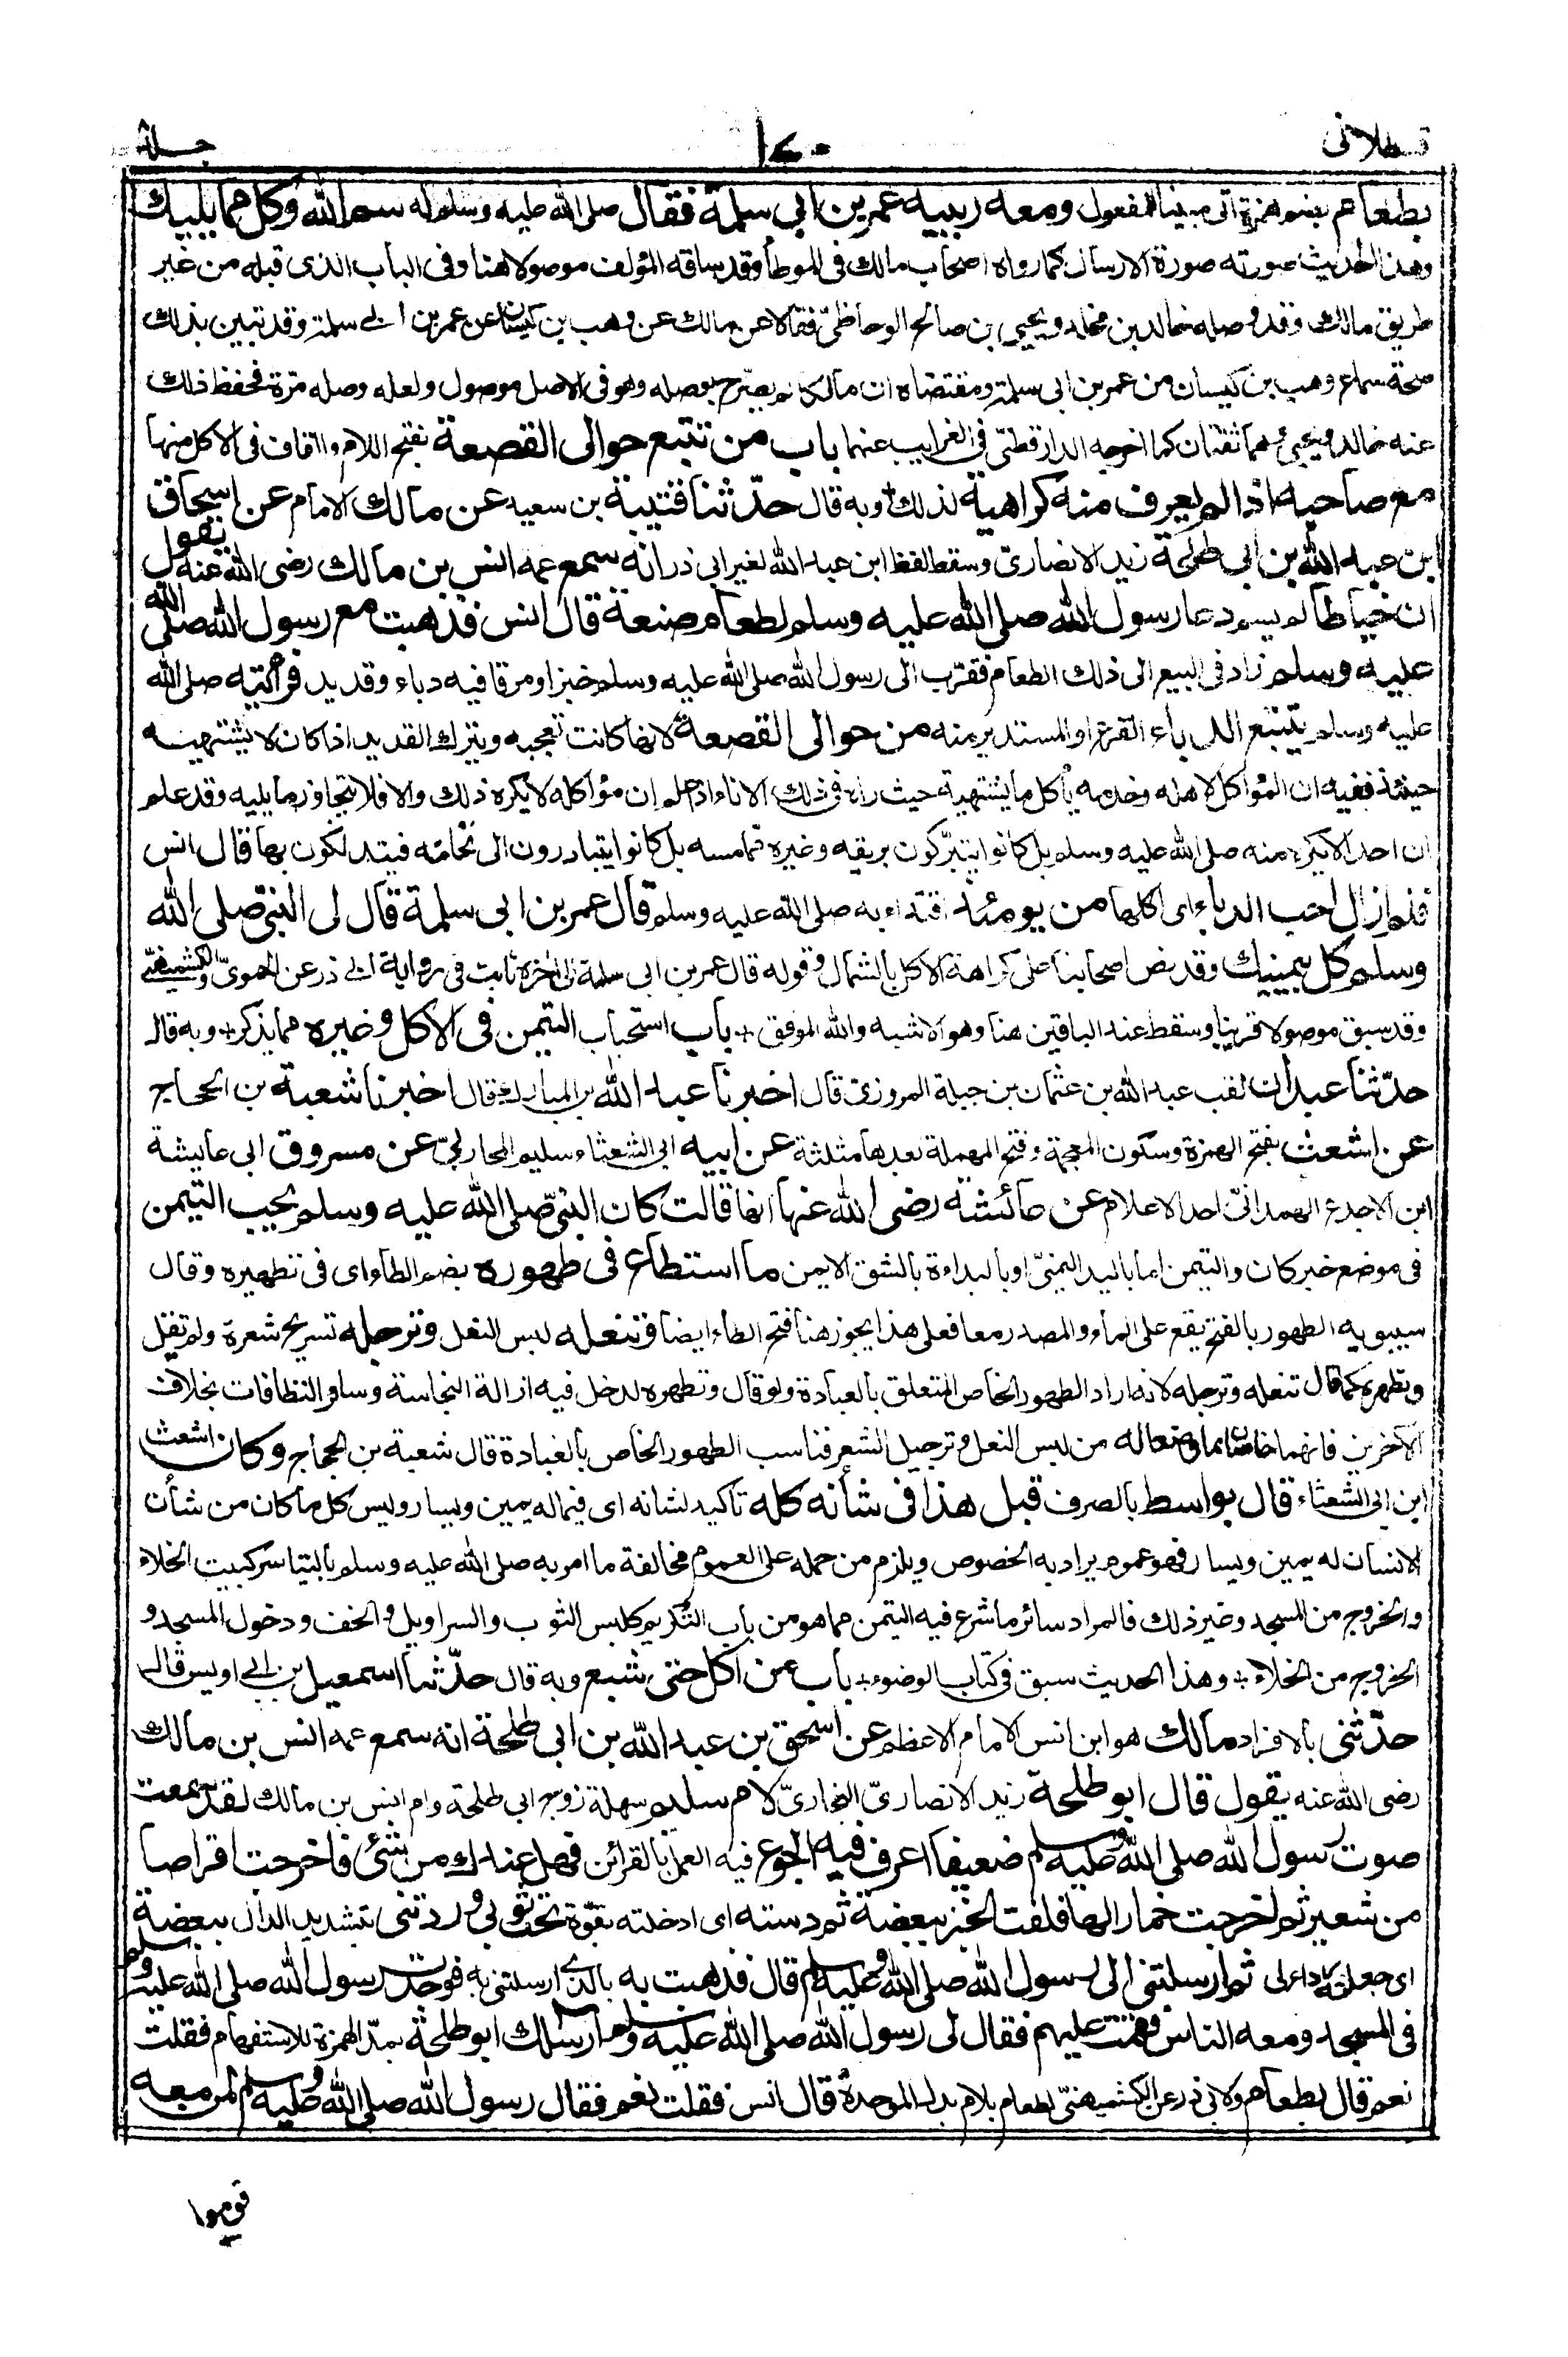 قسطلانی ١٤٠ جلد ٨
بطعام بضم همزة اتى مبنيا للمفعول ومعه ربيبه عمر بن ابي سلمة فقال صلى الله عليه وسلم له سم الله وكل مما يليك
وهذا الحديث صورته صورة الارسال كما رواه اصحاب مالك فى الموطأ وقد ساقه المؤلف موصولا هنا وفى الباب الذى قبله من غير
طريق مالك وقد وصله خالد بن مخلد ويحيى بن صالح الوحاظىّ فقالا عن مالك عن وهب بن كيسان عن عمر بن ابى سلمة وقد تبين بذلك
صحة سماع وهب بن كيسان من عمر بن ابى سلمة ومقتضاه ان مالكا لم يصرّح بوصله وهو فى الاصل موصول ولعله وصله مرّة فحفظ ذلك
عنه خالد ويحيى وهما ثقتان كما اخرجه الدارقطنىّ فى الغرايب عنهما باب من تتبع حوالى القصعة بفتح اللام والقاف فى الاكل منها
مع صاحبه اذا لم يعرف منه كراهية لذلك وبه قال حدّثنا قتيبة بن سعيد عن مالك الامام عن اسحاق
بن عبد الله بن ابى طلحة زيد الانصارىّ وسقط لفظ ابن عبد الله لغير ابى ذر انه سمع عمه انس بن مالك رضى الله عنه يقول
ان خياطا لم يسم دعا رسول الله صلى الله عليه وسلم لطعام صنعة قال انس فذهبت مع رسول الله صلى الله
عليه وسلم زاد فى البيع الى ذلك الطعام فقرّب الى رسول الله صلى الله عليه وسلم خبزا ومرقا فيه دباء وقديد فرأيته صلى الله
عليه وسلم يتتبع الدباء القرع او المستدير منه من حوالى القصعة لانها كانت تعجبه ويترك القديد اذا كان لا يشتهيه
حينئذ ففيه ان المؤاكل لاهله وخدمه يأكل ما يشتهيه حيث رآه فى ذلك الاناء اذا علم ان مؤاكله لا يكره ذلك والا فلا يتجاوز ما يليه وقد علم
ان احدا لا يكره منه صلى الله عليه وسلم بل كانوا يتبرّكون بريقه وغيره مما مسه بل كانوا يتبادرون الى نخامته فيتدلكون بها قال انس
فلم ازل احب الدباء اى اكلها من يومئذ اقتداء به صلى الله عليه وسلم قال عمر بن ابى سلمة قال لى النبىّ صلى الله
وسلم كل بيمينك وقد نص اصحابنا على كراهة الاكل بالشمال وقوله قال عمر بن ابى سلمة الى اخره ثابت فى رواية ابى ذر عن الحموىّ والكشميهنىّ
وقد سبق موصولا قريبا وسقط عند الباقين هنا وهو الاشبه والله الموفق + باب استحباب التيمن فى الاكل وغيره مما يذكر + وبه قال
حدّثنا عبدان لقب عبد الله بن عثمان بن جبلة المروزىّ قال اخبرنا عبد الله بن المبارك قال اخبرنا شعبة بن الحجاج
عن اشعث بفتح الهمزة وسكون المعجمة وفتح المهملة بعدها مثلثة عن ابيه ابى الشعثاء سليم المحاربىّ عن مسروق ابى عايشة
ابن الاجدع الهمدانىّ احد الاعلام عن عائشة رضى الله عنها انها قالت كان النبىّ صلى الله عليه وسلم يحب التيمن
فى موضع خبر كان والتيمن اما باليد اليمنىّ او بالبداءة بالشق الايمن ما استطاع فى طهوره بضم الطاء اى فى تطهيره وقال
سيبويه الطهور بالفتح يقع على الماء والمصدر معا فعلى هذا يجوز هنا فتح الطاء ايضا وتنعله لبس النعل وترجله تسريح شعرة ولم تقل
وتطهره كما قال تنعله وترجله لانه اراد الطهور الخاص المتعلق بالعبادة ولو قال وتطهره لدخل فيه ازالة النجاسة وسائر النظافات بخلاف
الآخرين فانهما خاصان بما وضعا له من لبس النعل وترجيل الشعر فناسب الطهور الخاص بالعبادة قال شعبة بن الحجاج وكان اشعث
ابن ابى الشعثاء قال بواسط بالصرف قبل هذا فى شأنه كله تاكيد لشانه اى فيما له يمين ويسار وليس كل ما كان من شأن
الانسان له يمين ويسار فهو عموم يراد به الخصوص ويلزم من حمله على العموم مخالفة ما امر به صلى الله عليه وسلم بالتياسر كبيت الخلاء
والخروج من المسجد وغير ذلك فالمراد سائر ما شرع فيه التيمن مما هو من باب التكريم كلبس الثوب والسراويل والخف ودخول المسجد و
الخروج من الخلاء + وهذا الحديث سبق فى كتاب الوضوء + باب من اكل حتى شبع وبه قال حدّثنا اسمعيل بن ابى اويس قال
حدّثنى بالافراد مالك هو ابن انس الامام الاعظم عن اسحق بن عبد الله بن ابى طلحة انه سمع عمه انس بن مالك
رضى الله عنه يقول قال ابو طلحة زيد الانصارىّ النجارىّ لام سليم سهلة زوج ابى طلحة وام انس بن مالك لقد سمعت
صوت رسول الله صلى الله عليه وسلم ضعيفا اعرف فيه الجوع فيه العمل بالقرائن فهل عندك من شئ فاخرجت اقراصا
من شعير ثم اخرجت خمارا لها فلفت الخبز ببعضه ثم دسته اى ادخلته بقوّة تحت ثوبى وردتنى بتشديد الدال ببعضه
اى جعلته رداء لى ثم ارسلتنى الى رسول الله صلى الله عليه وسلم قال فذهبت به بالذى ارسلتنى به فوجدت رسول الله صلى الله عليه وسلم
فى المسجد ومعه الناس فقمت عليهم فقال لى رسول الله صلى الله عليه وسلم آرسلك ابو طلحة بمدّ الهمزة للاستفهام فقلت
نعم قال بطعام ولابى ذر عن الكشميهنىّ لطعام بلام بدل الموحدة قال انس فقلت نعم فقال رسول الله صلى الله عليه وسلم لمن معه
قوموا